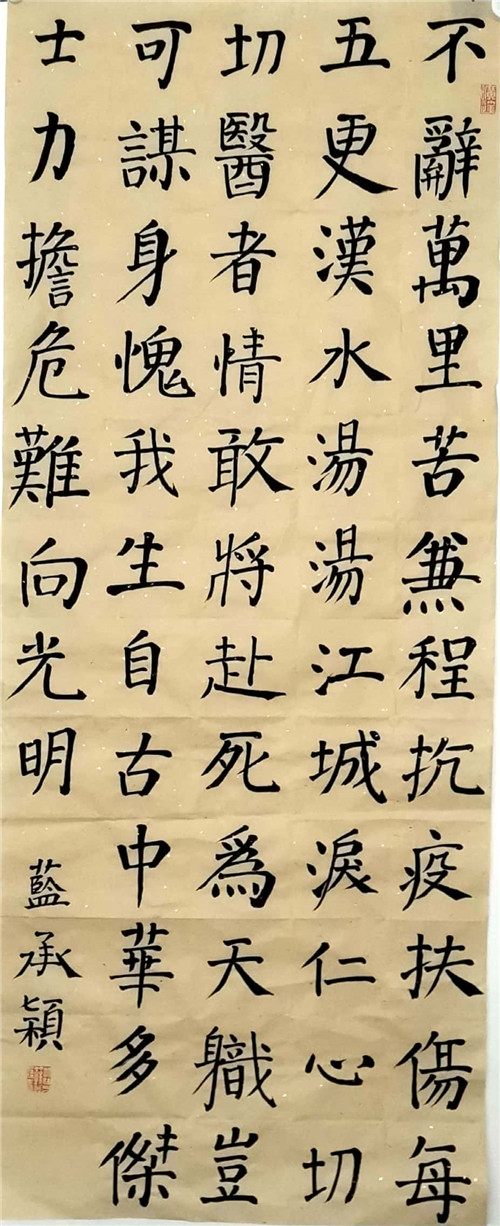 不辭萬里苦兼程抗疫扶傷每
五更漢水湯湯江城淚仁心切
切醫者情敢將赴死為天職豈
可謀身愧我生自古中華多傑
士力擔危難向光明
藍承穎